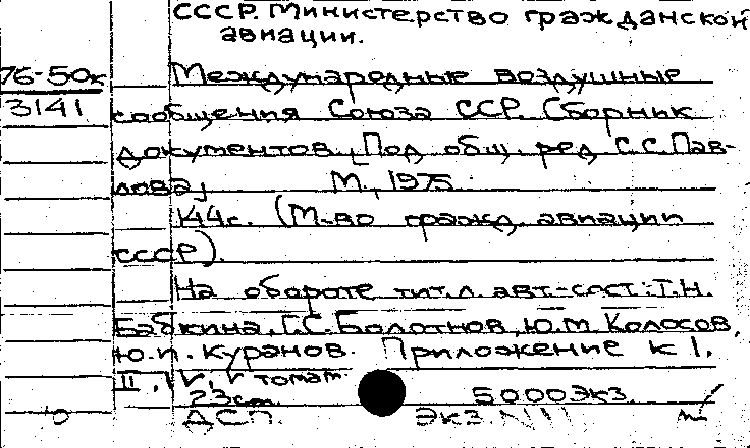 СССР. Министерство гражданской
авиации.
76-50к Международные воздушные
3141 сообщения Союза ССР. Сборник
документов. [Под общ. ред. С.С. Пав-
лова] М., 1975.
144 с. (М-во гражд. авиации
СССР).
На обороте тит. л. авт.-сост.: Т.Н.
Бабкина, Г.С. Болотнов, Ю.М. Колосов,
Ю.Н. Куранов. Приложение к I,
II, IV, V томам.
23 см. 5000 экз.
ДСП. Экз. N